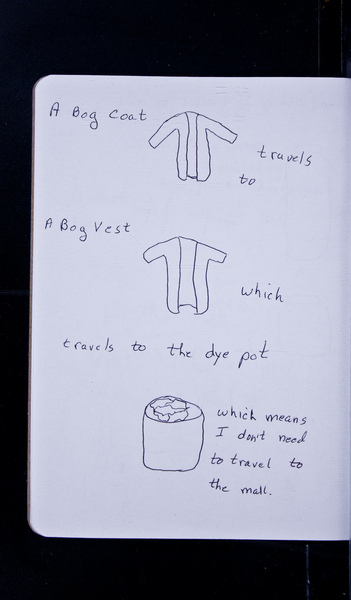 A Bog Coat
travels
to
A Bog Vest
which
travels to the dye pot
which means
I don't need
to travel to
the mall.